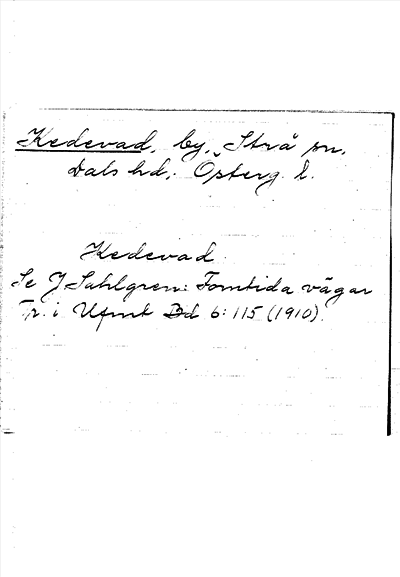 Kedevad, by, Strå sn,
Dals hd, Österg. l.
Kedevad.
Se J Sahlgren: Forntida vägar
Tr. i Ufmt Bd 6: 115 (1910).